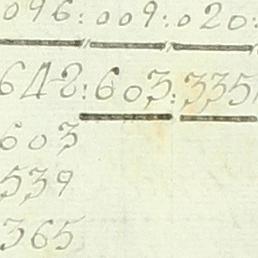 096:009:020:
642:603:335
603
539
365